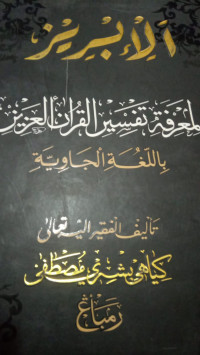 الإبريز
لمعرفة تفسير القرآن العزيز
باللغة الجاوية
تأليف الفقير إليه تعالى
كياهي بشري مصطفى
رمباڠ